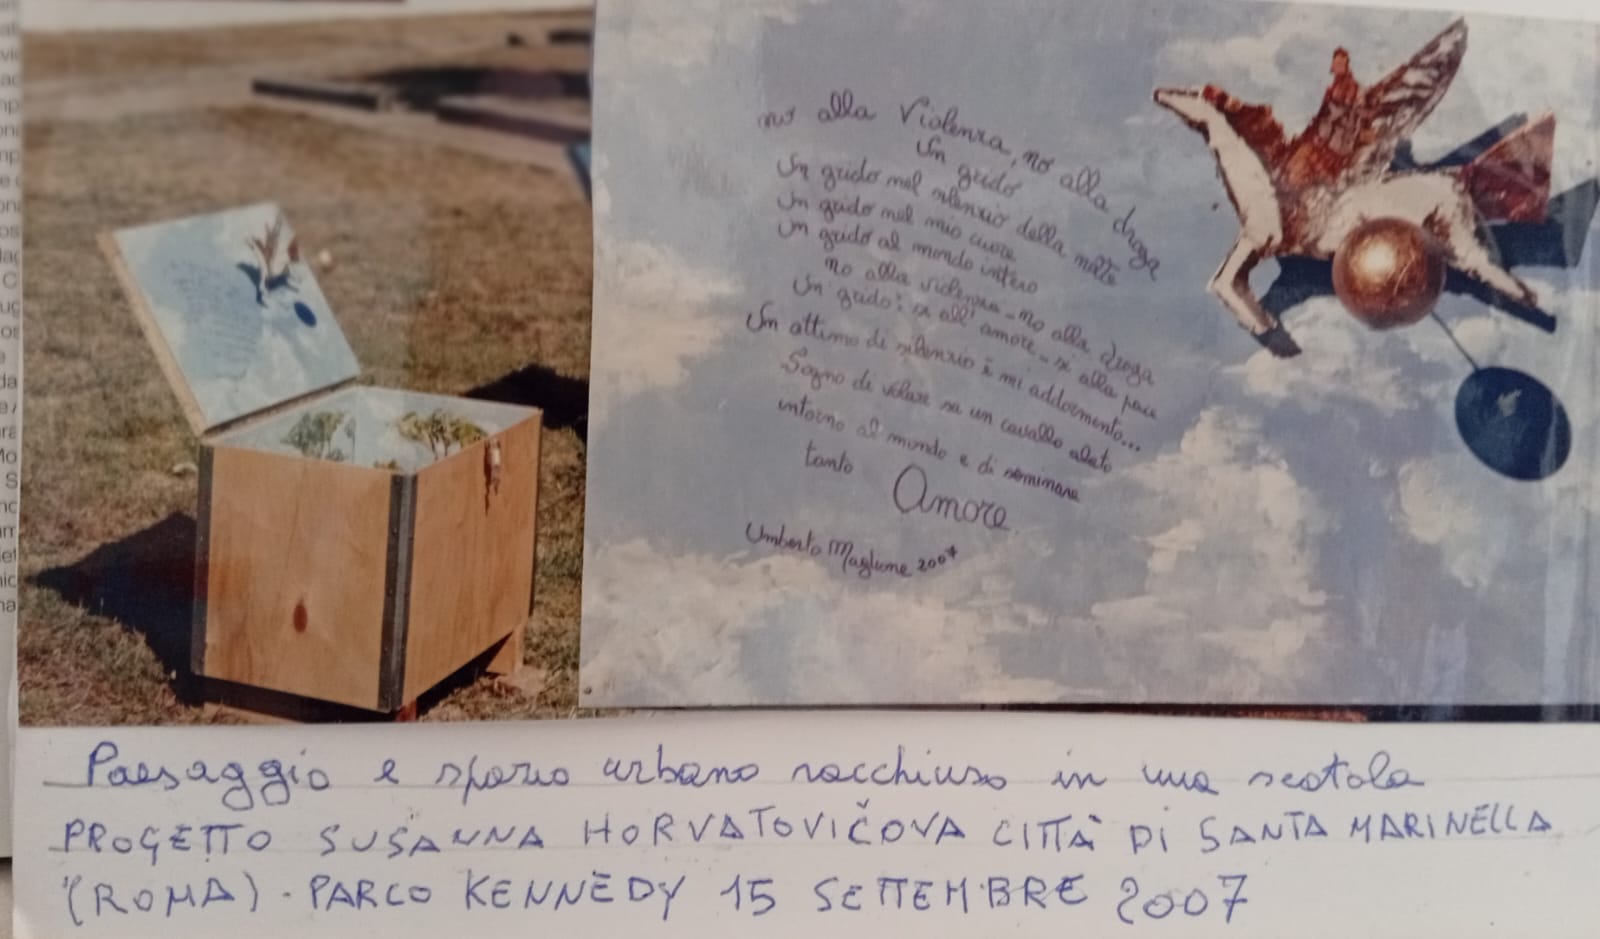 no alla Violenza, no alla droga
Un grido
Un grido nel silenzio della notte
Un grido nel mio cuore
Un grido al mondo intero
no alla violenza - no alla droga
Un grido: si all'amore - si alla pace
Un attimo di silenzio e mi addormento...
Sogno di volare su un cavallo alato
intorno al mondo e di seminare
tanto Amore
Umberto Maglione 2007
Paesaggio e spazio urbano racchiuso in una scatola
PROGETTO SUSANNA HORVATOVIČOVA CITTÀ DI SANTA MARINELLA
(ROMA) - PARCO KENNEDY 15 SETTEMBRE 2007